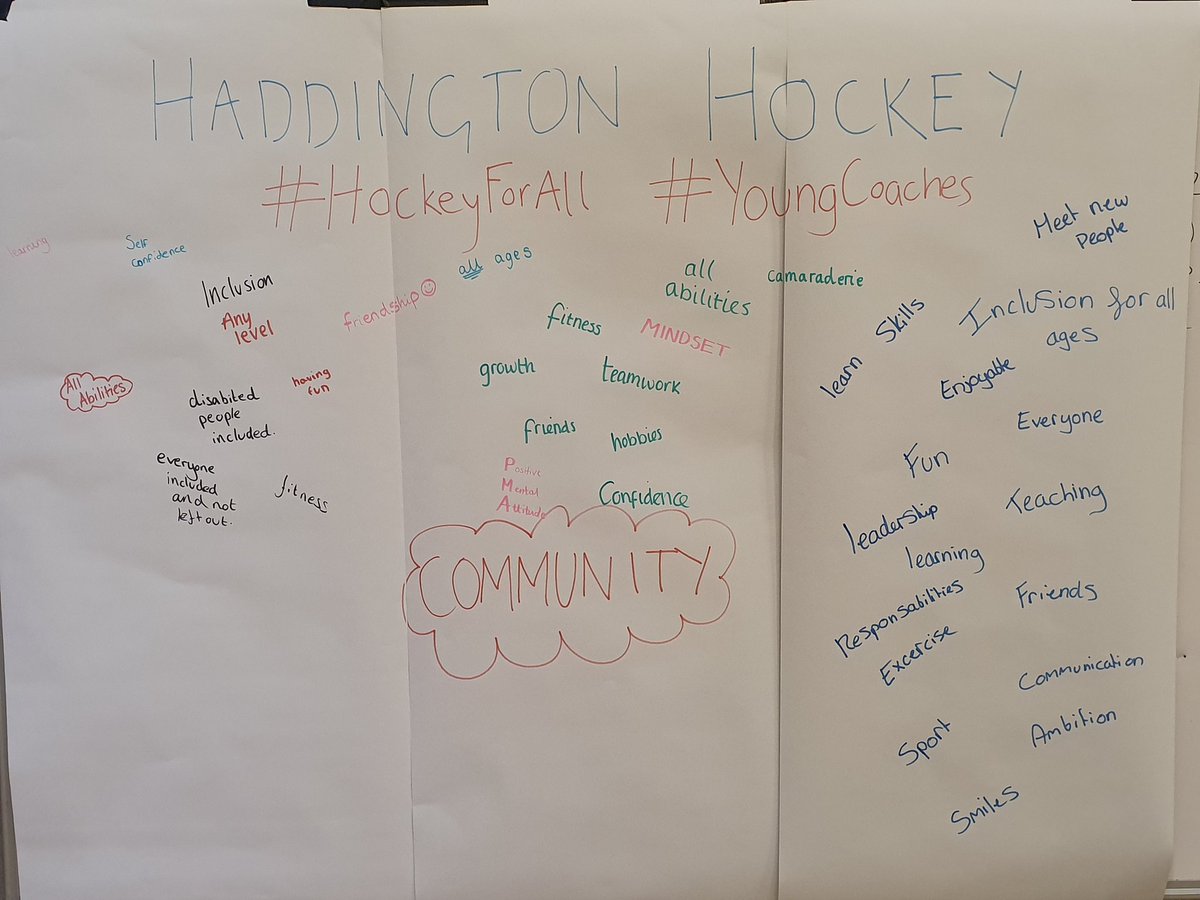 HADDINGTON HOCKEY
#HockeyForAll #YoungCoaches
learning
Self
confidence
Inclusion
Any
level
friendship
All
Abilities
disabited
people
included.
having
fun
everyone
included
and not
left out.
fitness
all ages
all
abilities
camaraderie
fitness
MINDSET
growth
teamwork
friends
hobbies
Positive
Mental
Attitude
Confidence
COMMUNITY
Meet new
People
learn Skills
Inclusion for all
ages
Enjoyable
Everyone
Fun
Teaching
leadership
learning
Responsabilities
Friends
Excercise
Communication
Sport
Ambition
Smiles